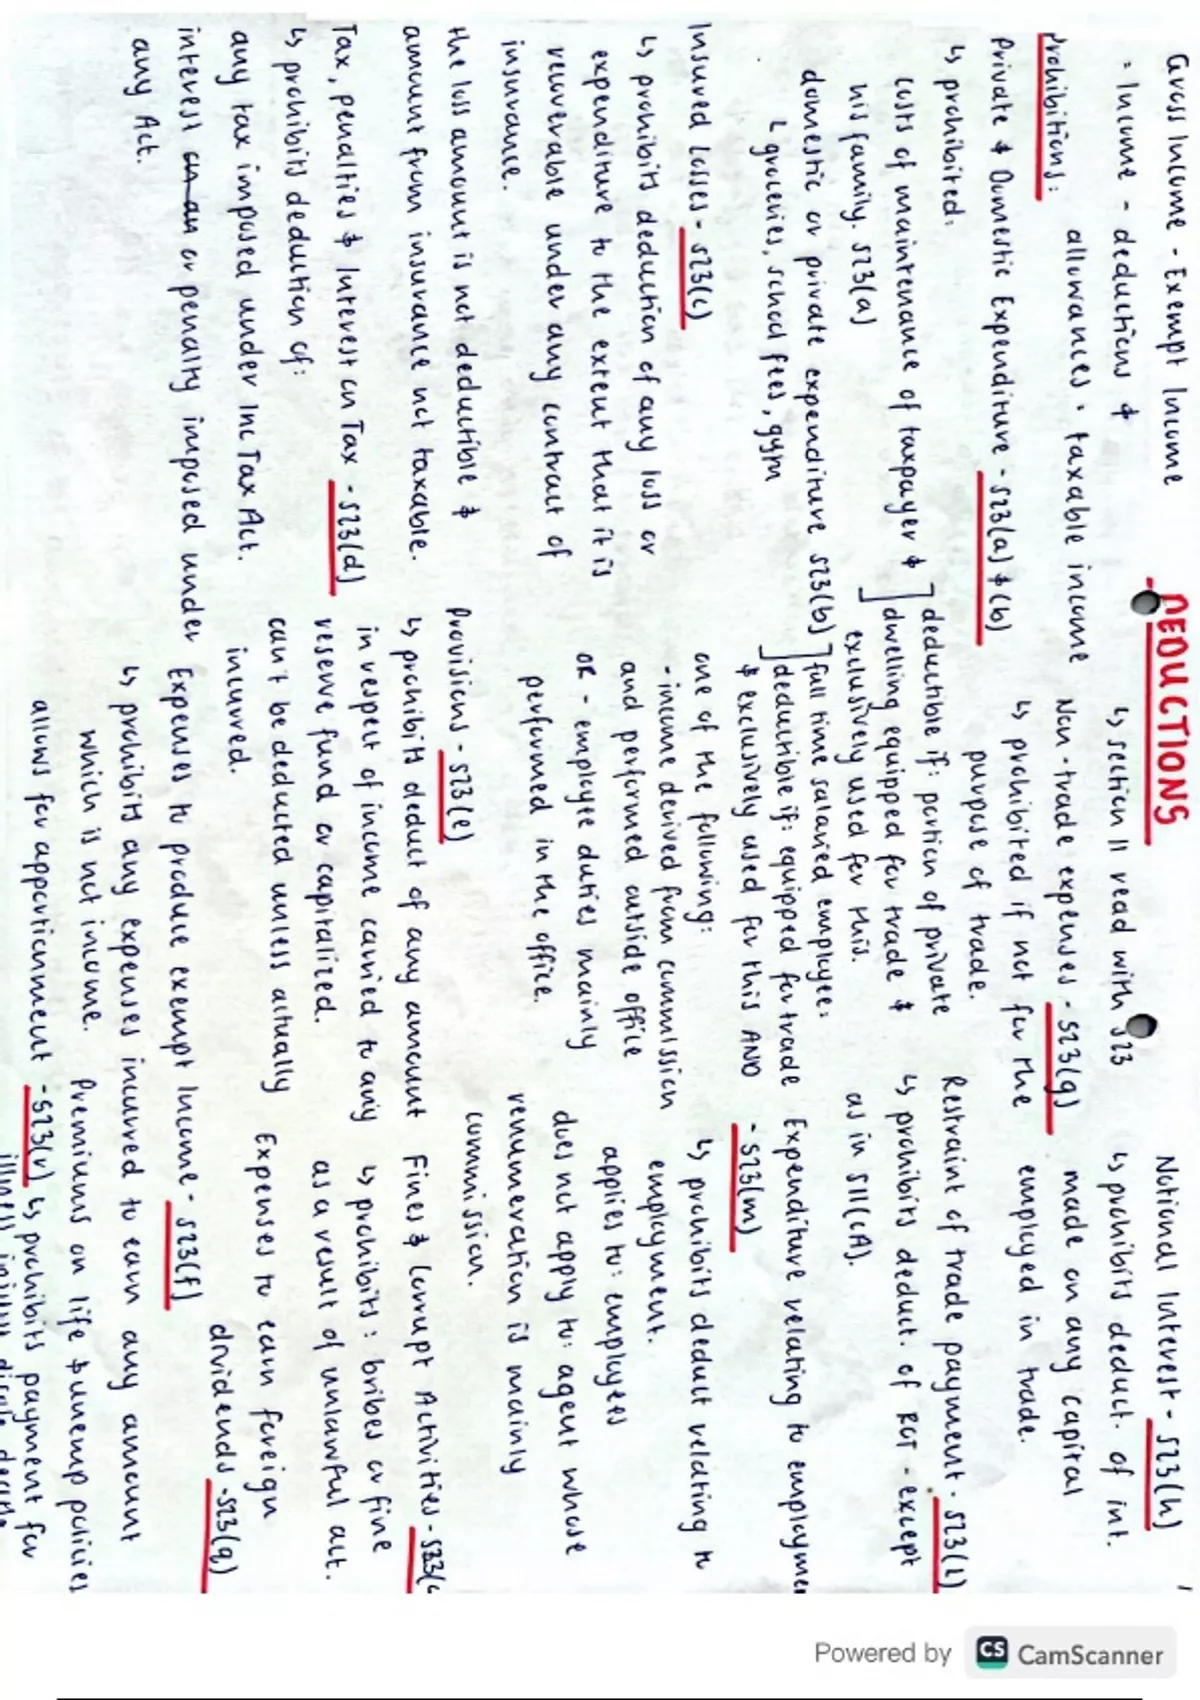 DEDUCTIONS
Gross Income - Exempt Income
= Income - deductions &
allowances = taxable income
Prohibitions:
Private & Domestic Expenditure - S23(a) & (b)
↳ prohibited:
costs of maintenance of taxpayer &
his family. S23(a)
] deductible if: portion of private
dwelling equipped for trade &
exclusively used for this.
domestic or private expenditure S23(b)
↳ groceries, school fees, gym
] full time salaried employee:
deductible if: equipped for trade
& exclusively used for this AND
one of the following:
- income derived from commission
and performed outside office
OR - employee duties mainly
performed in the office.
Insured Losses - S23(c)
↳ prohibits deduction of any loss or
expenditure to the extent that it is
recoverable under any contract of
insurance.
the loss amount is not deductible &
amount from insurance not taxable.
Tax, penalties & Interest on Tax - S23(d)
↳ prohibits deduction of:
any tax imposed under Inc Tax Act.
interest or penalty imposed under
any Act.
↳ section 11 read with S23
Non-trade expenses - S23(g)
↳ prohibited if not for the
purpose of trade.
Provisions - S23(e)
↳ prohibits deduct of any amount
in respect of income carried to any
reserve fund or capitalized.
can't be deducted unless actually
incurred.
Expenses to produce exempt Income - S23(f)
↳ prohibits any expenses incurred to earn any amount
which is not income.
allows for apportionment
Notional Interest - S23(h)
↳ prohibits deduct. of int.
made on any capital
employed in trade.
Restraint of trade payment - S23(l)
↳ prohibits deduct. of ROT - except
as in S11(cA).
Expenditure relating to
- S23(m)
↳ prohibits deduct relating to
employment.
applies to: employees
does not apply to: agent whose
remuneration is mainly
commission.
Fines & Corrupt Activities -
↳ prohibits: bribes or fine
as a result of unlawful act.
Expenses to earn foreign
dividends - S23(q)
Premiums on life & unemp policies
- S23(r)
↳ prohibits payment for
Powered by CS CamScanner